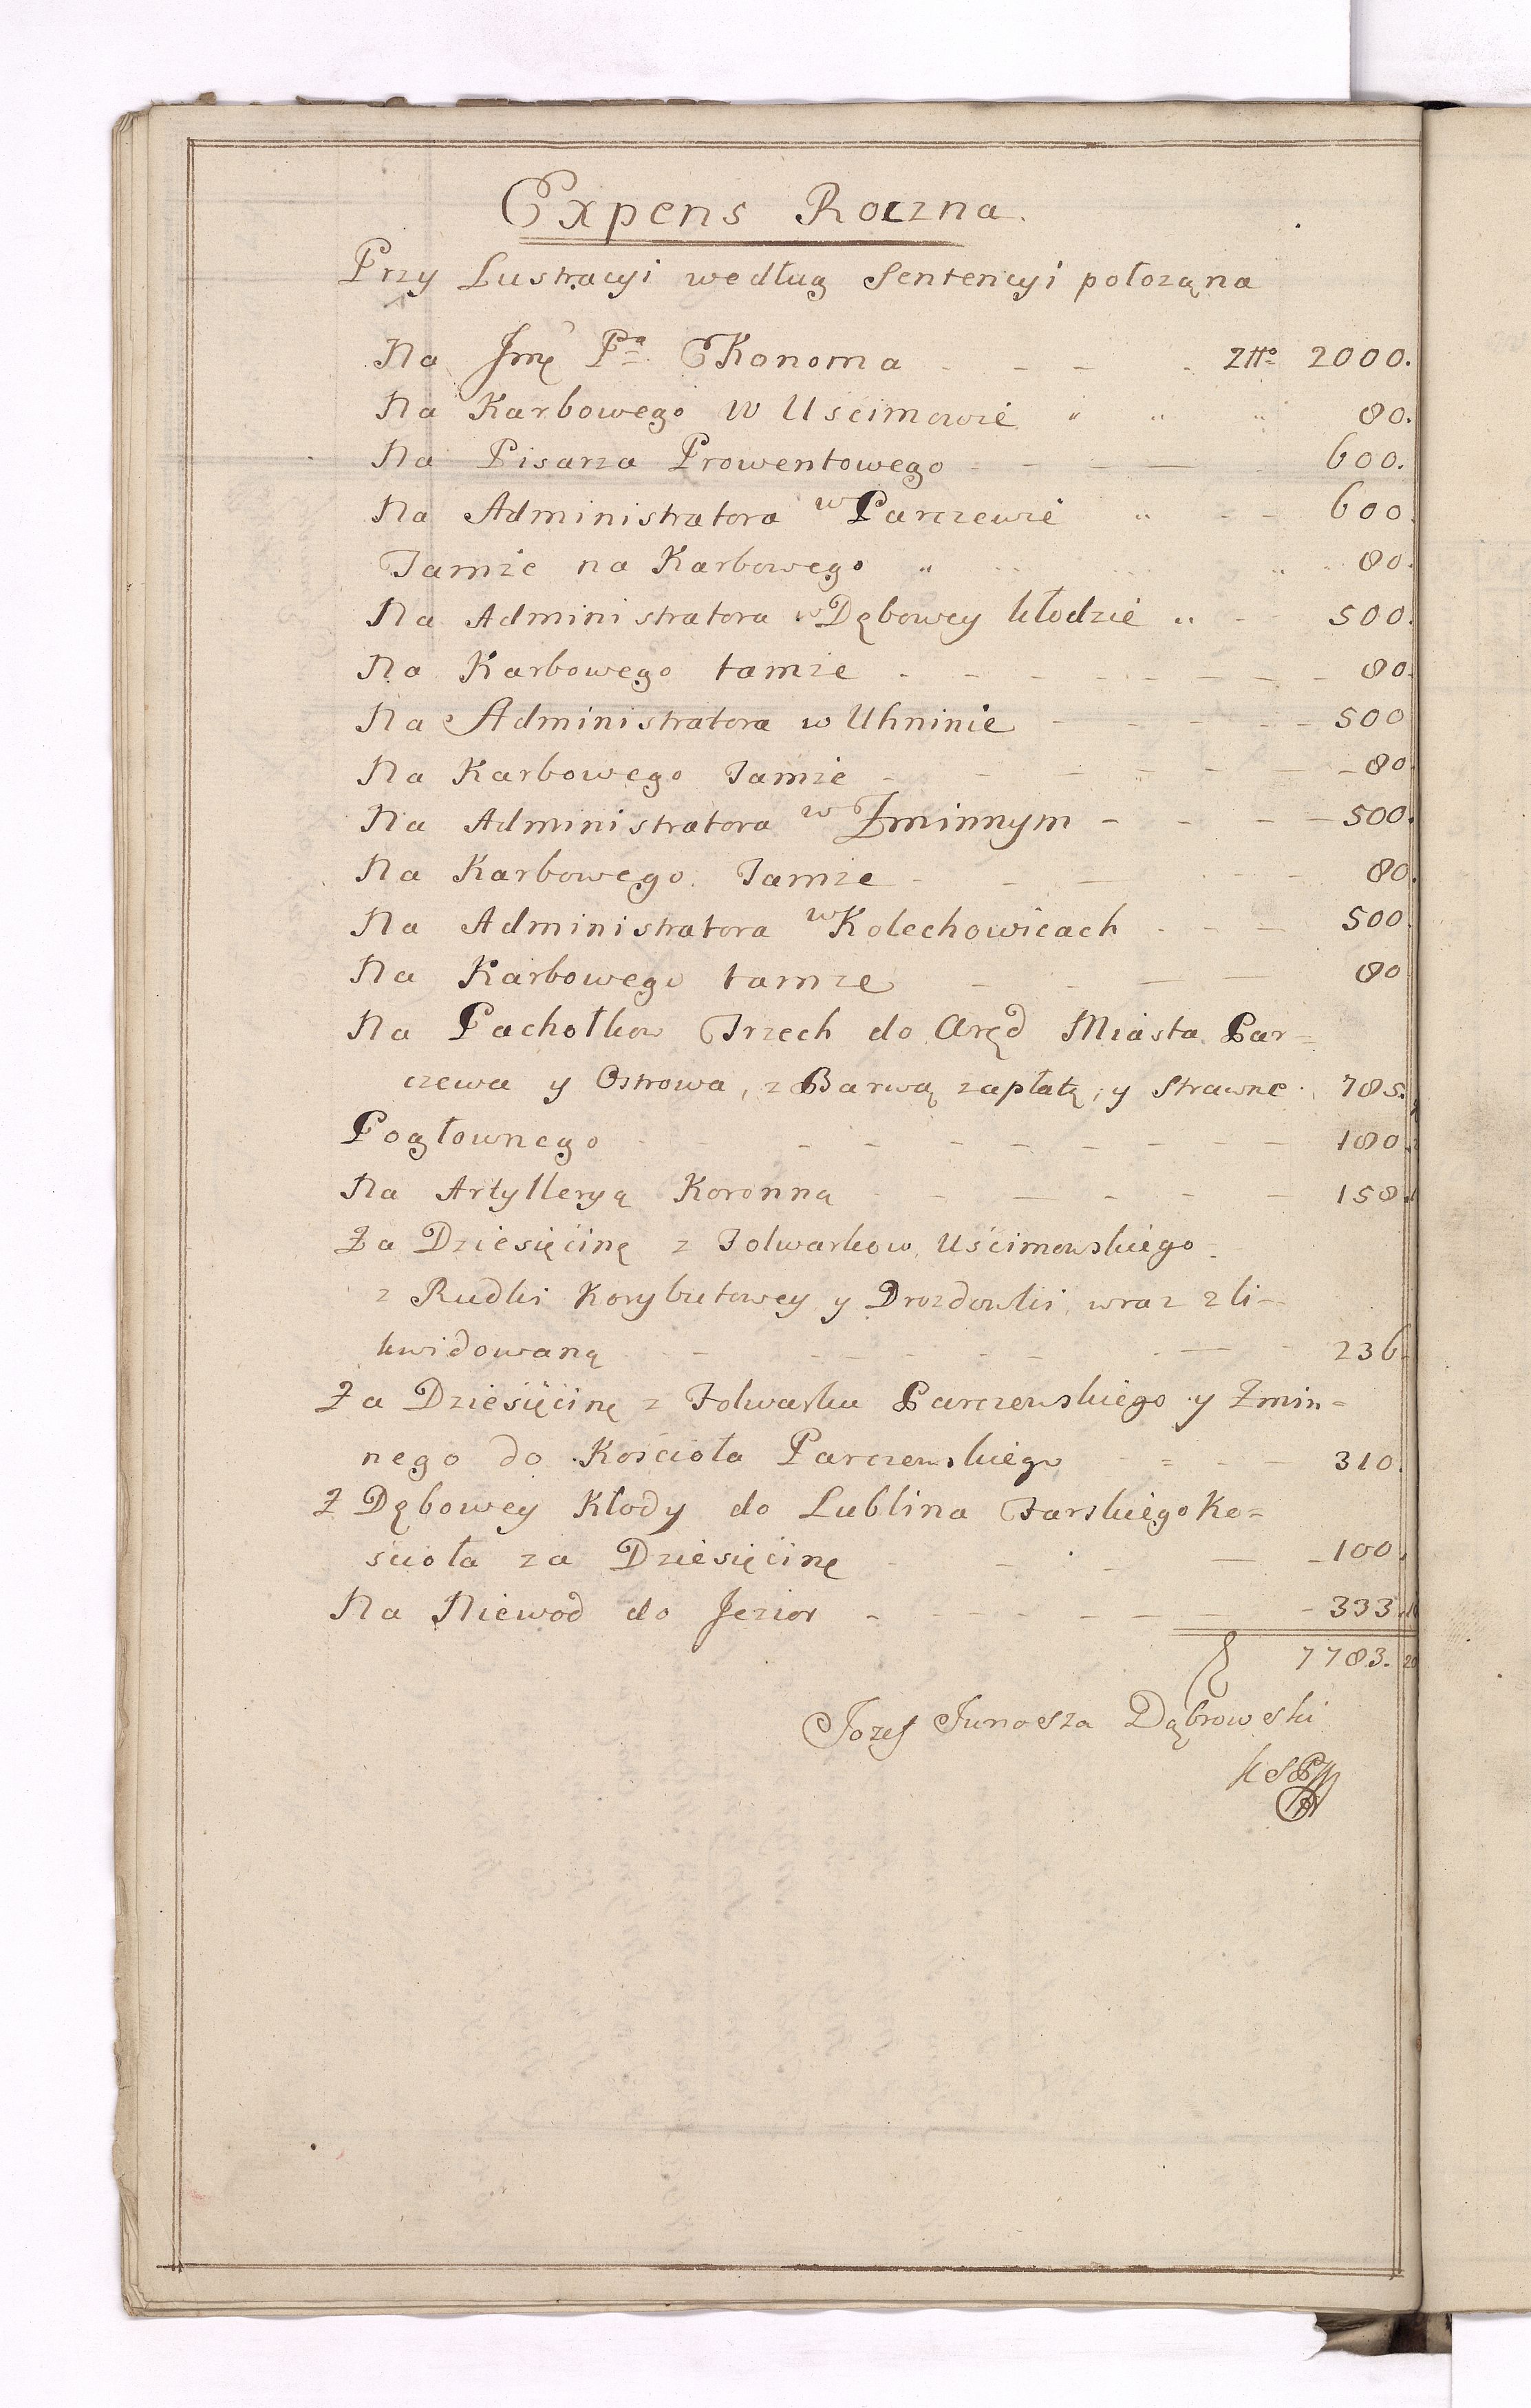 Expens Roczna.
Przy Lustracyi według Sentencyi położąna
Na Jmę Pa. Ekonoma - - - - Złło 2000.
Na Karbowego w Uscimowie " " " 80.
Na Pisarza Prowentowego - - - - 600.
Na Administratora w Parczewie " - - 600.
Tamże na Karbowego " " " " 80.
Na Administratora w Dębowey kłodzie " - - 500.
Na Karbowego tamże - - - - - - 80.
Na Administratora w Uhninie - - - - 500
Na Karbowego Tamże - - - - - - 80.
Na Administratora w Zminnym - - - - 500.
Na Karbowego Tamże - - - - - 80.
Na Administratora w Kolechowicach - - - 500.
Na Karbowego tamże - - - - 80
Na Pachołkow Trzech do Aręd Miasta Par=
czewa y Ostrowa, z Barwą zapłatą, y Strawne . 785.
Pogłownego - - - - - - - - 180.
Na Artylleryą Koronną - - - - - - 158.
Za Dziesięcinę z Folwarkow Uścimowskiego
z Rudki Korybutowey y Drozdowki wraz zli-
kwidowaną - - - - - - - 236.
Za Dziesięcinę z Folwarku Parczewskiego y Zmin=
nego do Kościoła Parczewskiego - = - - 310.
Z Dębowey Kłody do Lublina Farskiego Ko=
ścioła za Dziesięcinę - - - - - 100.
Na Niewod do Jezior - - - - - - - 333.
7783. 20
Jozef Junosza Dąbrowski